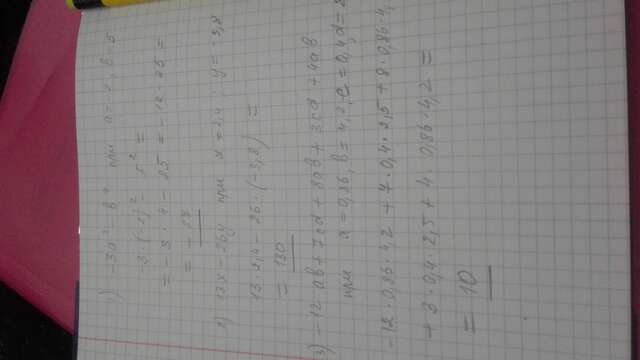 1) -3a² - b² при a = -2, b = 5
-3 · (-2)² - 5² =
= -3 · 4 - 25 = -12 - 25 =
= -37
2) 13x - 26y при x = 2,4 ; y = -3,8
13 · 2,4 - 26 · (-3,8) =
= 130
3) -12 ab + 7cd + 8ab + 3cd + 4ab
при a = 0,86, b = 4,2, c = 0,4, d = 2
-12 · 0,86 · 4,2 + 7 · 0,4 · 2,5 + 8 · 0,86 · 4,
+ 3 · 0,4 · 2,5 + 4 · 0,86 · 4,2 =
= 10